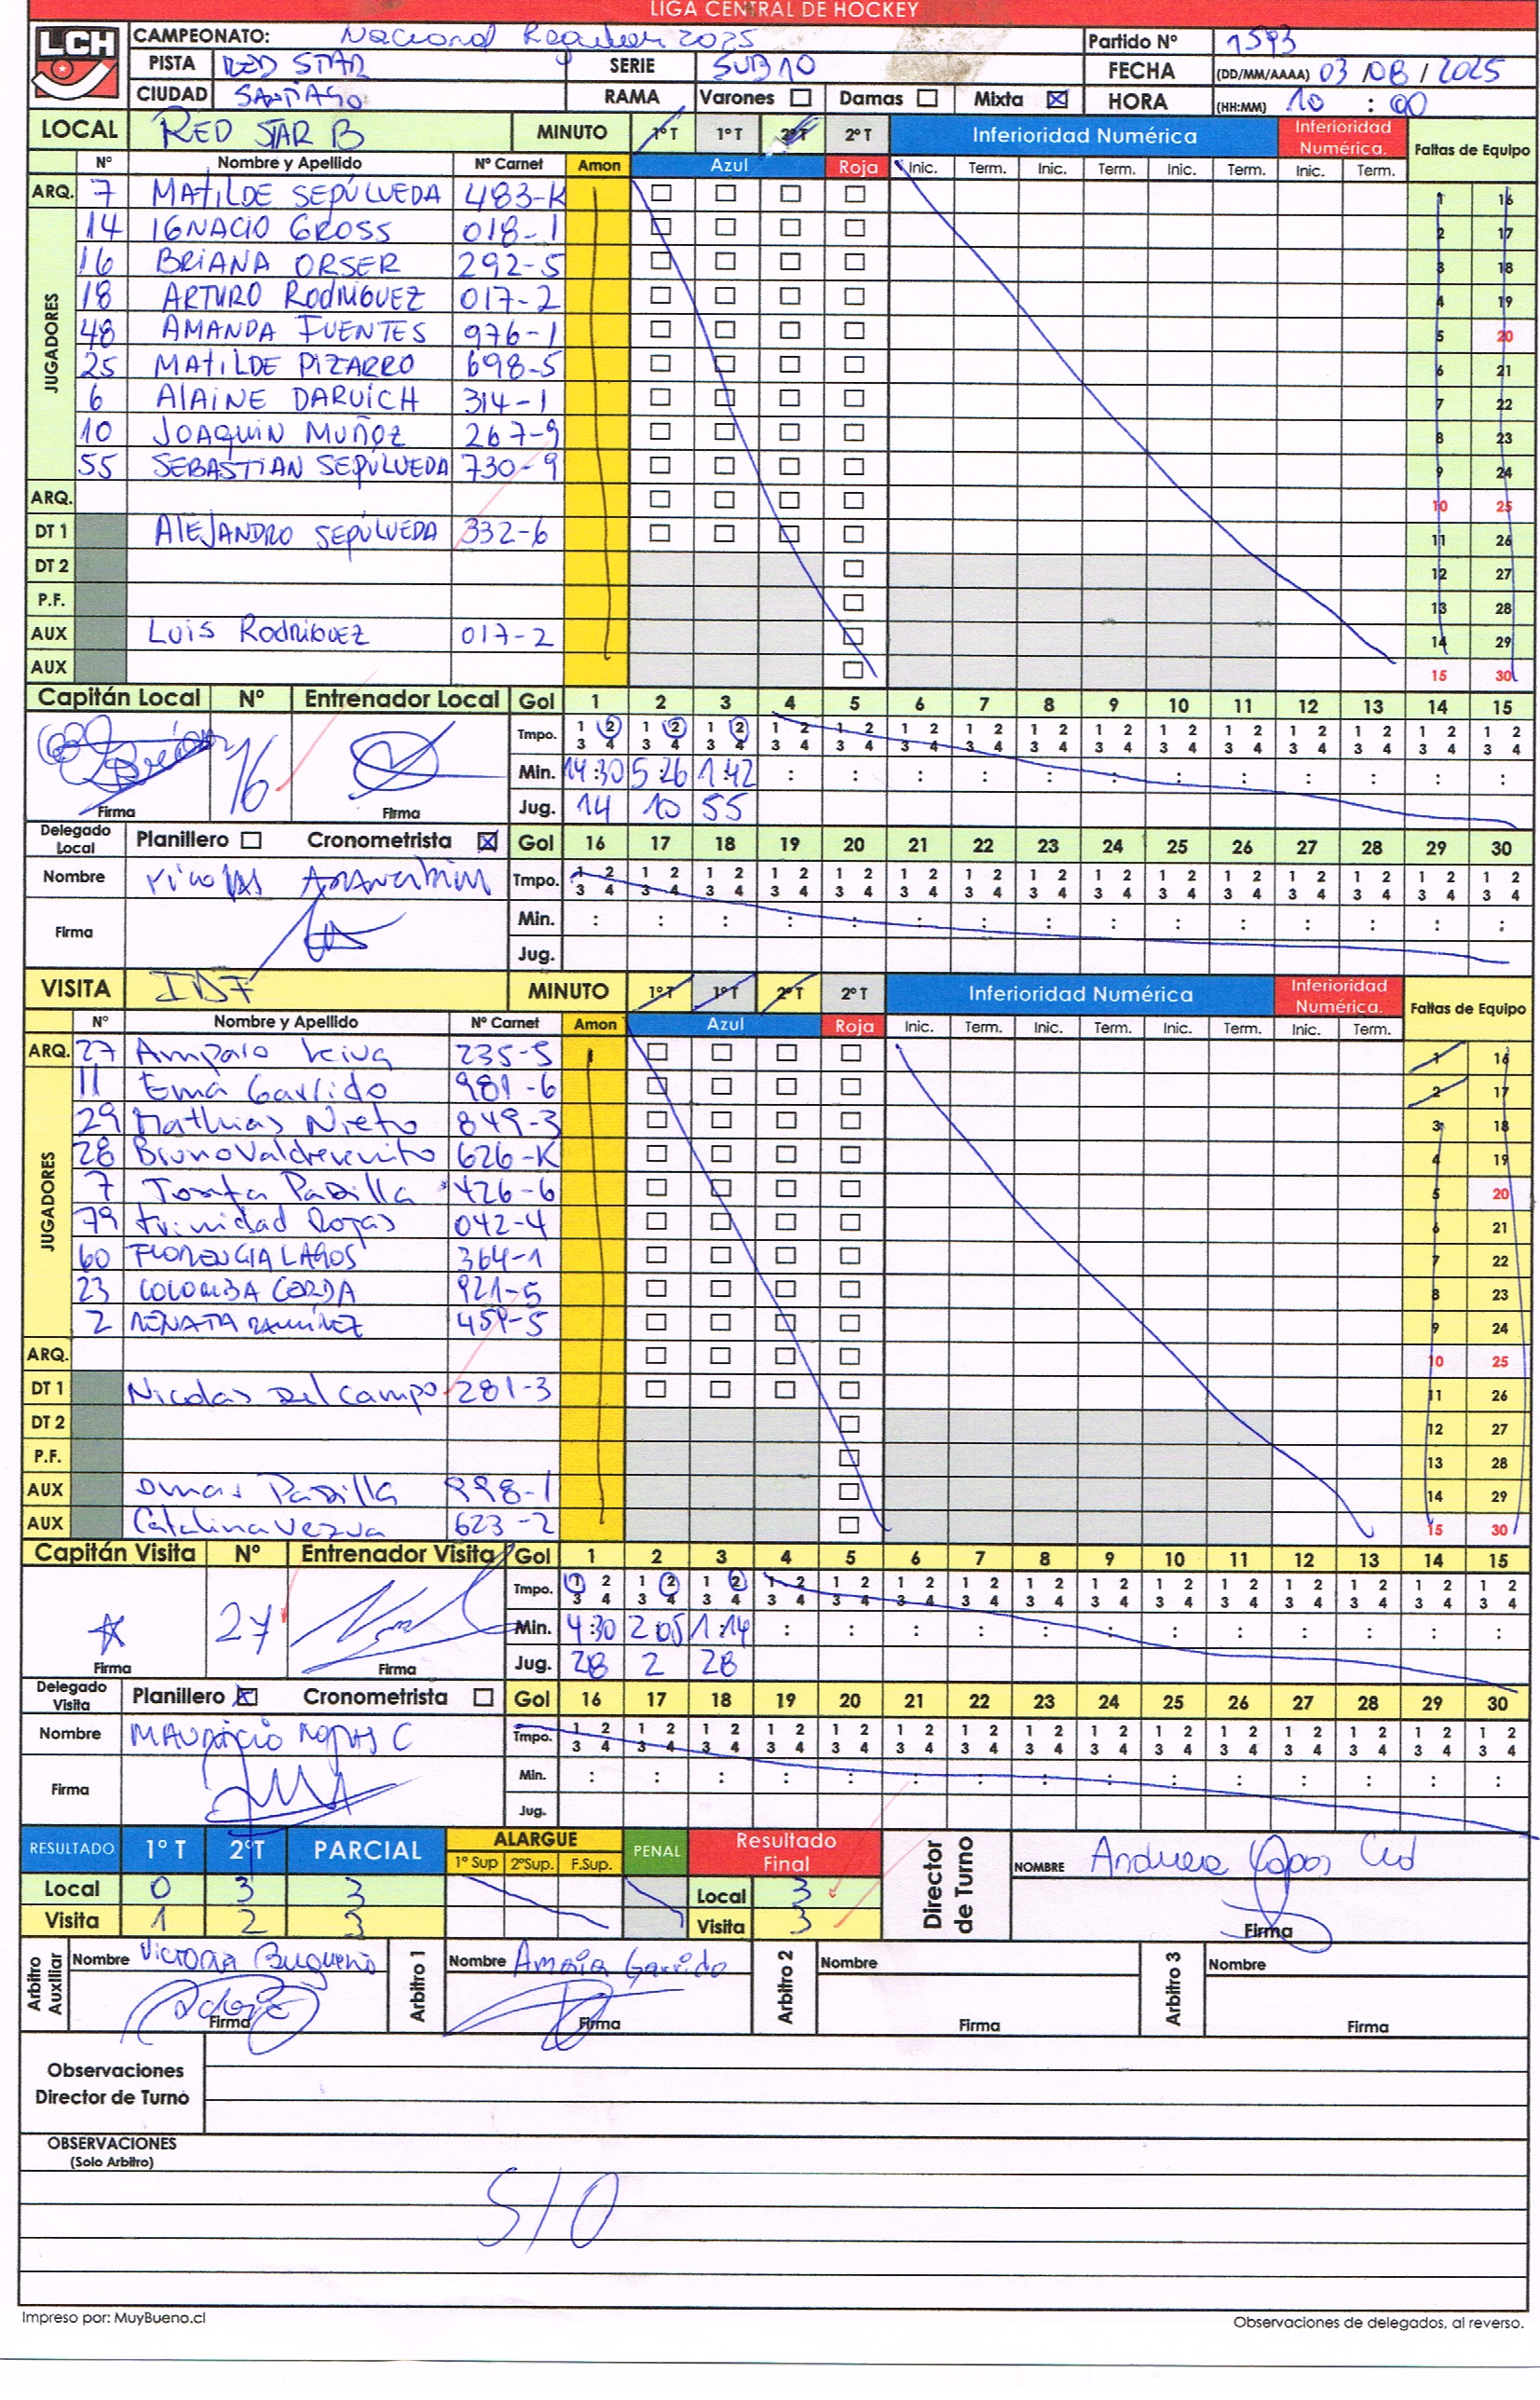 LIGA CENTRAL DE HOCKEY
LCH
CAMPEONATO: Nacional Regular 2025 Partido Nº 1593
PISTA RED STAR SERIE SUB 10 FECHA (DD/MM/AAAA) 03/08/2025
CIUDAD SANTIAGO RAMA Varones Damas Mixta HORA (HH:MM) 10:00
LOCAL RED STAR B MINUTO 1º T 1º T 2º T 2º T Inferioridad Numérica Inferioridad Numérica. Faltas de Equipo
Nº Nombre y Apellido Nº Carnet Amon Azul Roja Inic. Term. Inic. Term. Inic. Term. Inic. Term.
JUGADORES
ARQ. 7 MATILDE SEPÚLVEDA 483-K 1 16
14 IGNACIO GROSS 018-1 2 17
16 BRIANA ORSER 292-5 3 18
18 ARTURO RODRIGUEZ 017-2 4 19
48 AMANDA FUENTES 976-1 5 20
25 MATILDE PIZARRO 698-5 6 21
6 ALAINE DARUICH 314-1 7 22
10 JOAQUIN MUÑOZ 267-9 8 23
55 SEBASTIAN SEPÚLVEDA 730-9 9 24
ARQ. 10 25
DT 1 ALEJANDRO SEPÚLVEDA 332-6 11 26
DT 2 12 27
P.F. 13 28
AUX LUIS RODRIGUEZ 017-2 14 29
AUX 15 30
Capitán Local Nº Entrenador Local Gol 1 2 3 4 5 6 7 8 9 10 11 12 13 14 15
Tmpo. 1 2 3 4 1 2 3 4 1 2 3 4 1 2 3 4 1 2 3 4 1 2 3 4 1 2 3 4 1 2 3 4 1 2 3 4 1 2 3 4 1 2 3 4 1 2 3 4 1 2 3 4 1 2 3 4 1 2 3 4
16 Min. 14:30 5:26 1:42 : : : : : : : : : : : :
Firma Firma Jug. 14 10 55
Delegado Local Planillero Cronometrista Gol 16 17 18 19 20 21 22 23 24 25 26 27 28 29 30
Nombre Tmpo. 1 2 3 4 1 2 3 4 1 2 3 4 1 2 3 4 1 2 3 4 1 2 3 4 1 2 3 4 1 2 3 4 1 2 3 4 1 2 3 4 1 2 3 4 1 2 3 4 1 2 3 4 1 2 3 4 1 2 3 4
Firma Min. : : : : : : : : : : : : : : :
Jug.
VISITA MINUTO 1º T 1º T 2º T 2º T Inferioridad Numérica Inferioridad Numérica. Faltas de Equipo
Nº Nombre y Apellido Nº Carnet Amon Azul Roja Inic. Term. Inic. Term. Inic. Term. Inic. Term.
JUGADORES
ARQ. 27 Amparo Leiva 235-5 1 16
11 Ema Garrido 981-6 2 17
29 Mathias Nieto 849-3 3 18
28 Bruno Valdevenito 626-K 4 19
7 Josefa Padilla 426-6 5 20
79 Trinidad Rojas 042-4 6 21
60 FLORENCIA LAGOS 364-1 7 22
23 COLOMBA CERDA 921-5 8 23
2 RENATA RAMIREZ 459-5 9 24
ARQ. 10 25
DT 1 Nicolas Del Campo 281-3 11 26
DT 2 12 27
P.F. 13 28
AUX Padilla 998-1 14 29
AUX Catalina 623-2 15 30
Capitán Visita Nº Entrenador Visita Gol 1 2 3 4 5 6 7 8 9 10 11 12 13 14 15
Tmpo. 1 2 3 4 1 2 3 4 1 2 3 4 1 2 3 4 1 2 3 4 1 2 3 4 1 2 3 4 1 2 3 4 1 2 3 4 1 2 3 4 1 2 3 4 1 2 3 4 1 2 3 4 1 2 3 4 1 2 3 4
27 Min. 4:30 2:05 1:14 : : : : : : : : : : : :
Firma Firma Jug. 28 2 28
Delegado Visita Planillero Cronometrista Gol 16 17 18 19 20 21 22 23 24 25 26 27 28 29 30
Nombre MAURICIO ROJAS C Tmpo. 1 2 3 4 1 2 3 4 1 2 3 4 1 2 3 4 1 2 3 4 1 2 3 4 1 2 3 4 1 2 3 4 1 2 3 4 1 2 3 4 1 2 3 4 1 2 3 4 1 2 3 4 1 2 3 4 1 2 3 4
Firma Min. : : : : : : : : : : : : : : :
Jug.
RESULTADO 1º T 2ºT PARCIAL ALARGUE 1º Sup 2ºSup. F.Sup. PENAL Resultado Final Director de Turno NOMBRE Andrea
Local 0 3 3 Local 3
Visita 1 2 3 Visita 3 Firma
Arbitro Auxiliar Nombre Victoria Bugueño Arbitro 1 Nombre Amaia Garrido Arbitro 2 Nombre Arbitro 3 Nombre
Firma Firma Firma Firma
Observaciones Director de Turno
OBSERVACIONES
(Solo Arbitro)
S/O
Impreso por: MuyBueno.cl Observaciones de delegados, al reverso.